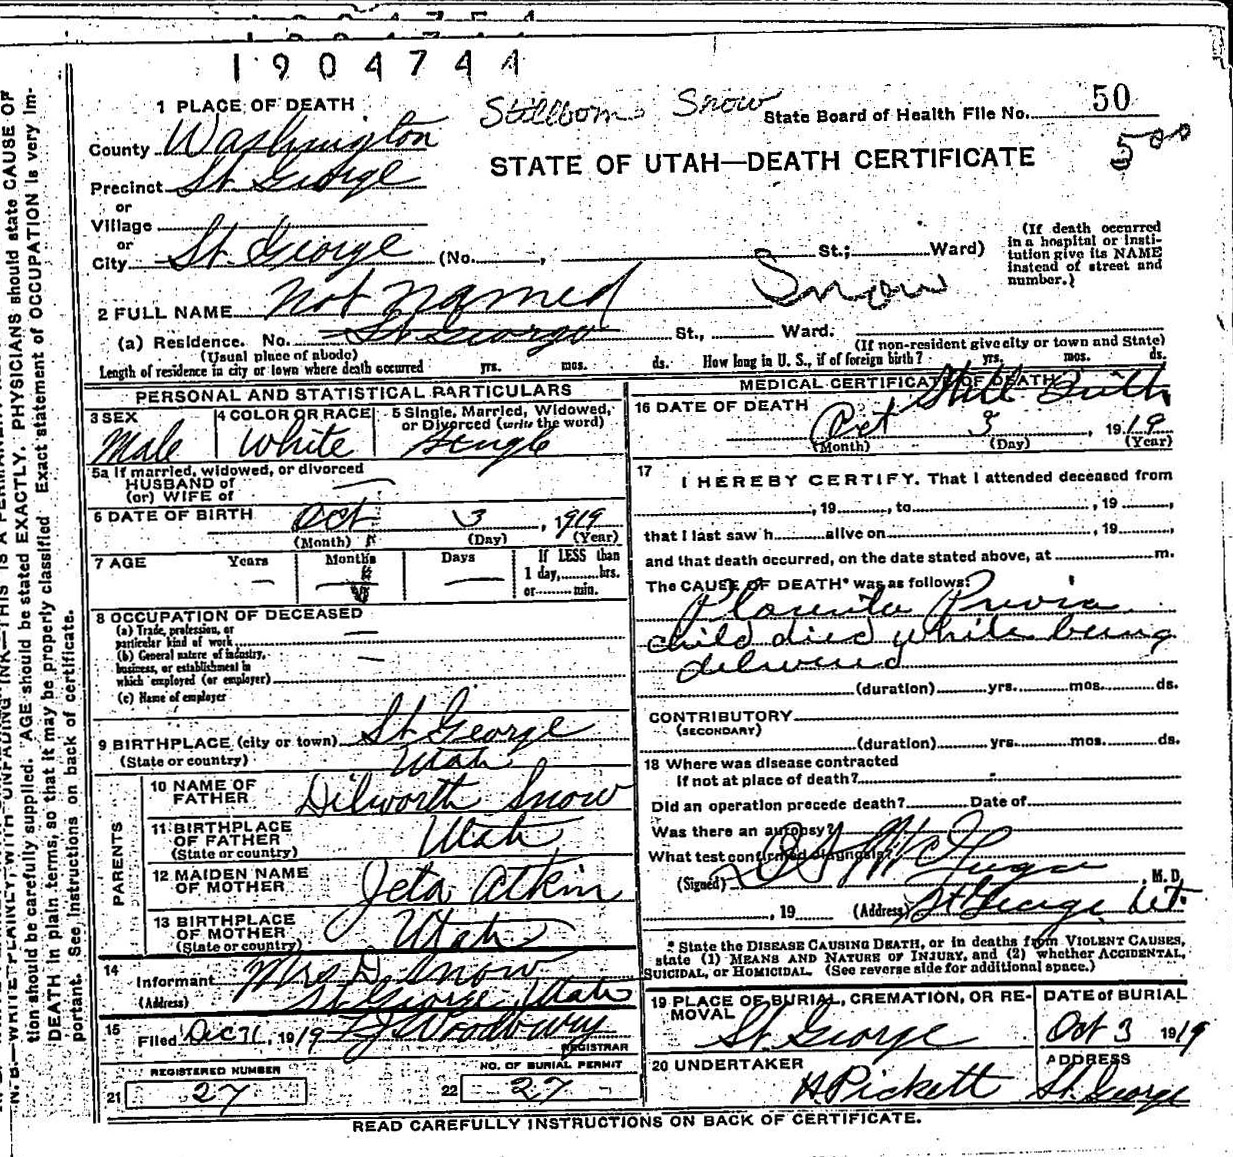 1904744
1 PLACE OF DEATH
Stillborn Snow
State Board of Health File No. 50
500
County Washington
STATE OF UTAH—DEATH CERTIFICATE
Precinct St. George
or
Village
or
City St. George (No. , St.; Ward)
(If death occurred in a hospital or institution give its NAME instead of street and number.)
2 FULL NAME Not Named Snow
(a) Residence. No. St. George St., Ward.
(Usual place of abode)
(If non-resident give city or town and State)
Length of residence in city or town where death occurred yrs. mos. ds. How long in U. S., if of foreign birth? yrs. mos. ds.
PERSONAL AND STATISTICAL PARTICULARS
3 SEX
Male
4 COLOR OR RACE
White
5 Single, Married, Widowed, or Divorced (write the word)
Single
5a If married, widowed, or divorced
HUSBAND of
(or) WIFE of
6 DATE OF BIRTH
Oct 3, 1919
(Month) (Day) (Year)
7 AGE Years Months Days If LESS than
1 day, hrs.
or min.
8 OCCUPATION OF DECEASED
(a) Trade, profession, or
particular kind of work
(b) General nature of industry,
business, or establishment in
which employed (or employer)
(c) Name of employer
9 BIRTHPLACE (city or town) St. George
(State or country) Utah
PARENTS
10 NAME OF FATHER Dilworth Snow
11 BIRTHPLACE OF FATHER
(State or country) Utah
12 MAIDEN NAME OF MOTHER Jeta Atkin
13 BIRTHPLACE OF MOTHER
(State or country) Utah
14
Informant Mrs D. Snow
(Address) St. George, Utah
15
Filed Dec 31, 1919 Woodbury
REGISTRAR
REGISTERED NUMBER
21 27
NO. OF BURIAL PERMIT
22 27
MEDICAL CERTIFICATE OF DEATH
Still Birth
16 DATE OF DEATH
Oct 3, 1919
(Month) (Day) (Year)
17
I HEREBY CERTIFY, That I attended deceased from
, 19 , to , 19 ,
that I last saw h alive on , 19 ,
and that death occurred, on the date stated above, at m.
The CAUSE OF DEATH* was as follows:
Placenta Previa
child died while being
delivered
(duration) yrs. mos. ds.
CONTRIBUTORY
(SECONDARY)
(duration) yrs. mos. ds.
18 Where was disease contracted
if not at place of death?
Did an operation precede death? Date of
Was there an autopsy?
What test confirmed diagnosis?
(Signed) , M. D.
, 19 (Address) St George Ut.
* State the DISEASE CAUSING DEATH, or in deaths from VIOLENT CAUSES,
state (1) MEANS AND NATURE OF INJURY, and (2) whether ACCIDENTAL,
SUICIDAL, or HOMICIDAL. (See reverse side for additional space.)
19 PLACE OF BURIAL, CREMATION, OR REMOVAL
St George
DATE of BURIAL
Oct 3 1919
20 UNDERTAKER
A Pickett
ADDRESS
St. George
READ CAREFULLY INSTRUCTIONS ON BACK OF CERTIFICATE.
N. B.—WRITE PLAINLY WITH UNFADING INK—THIS IS A PERMANENT
tion should be carefully supplied. AGE should be stated EXACTLY. PHYSICIANS should state CAUSE OF
DEATH in plain terms, so that it may be properly classified. Exact statement of OCCUPATION is very im-
portant. See instructions on back of certificate.